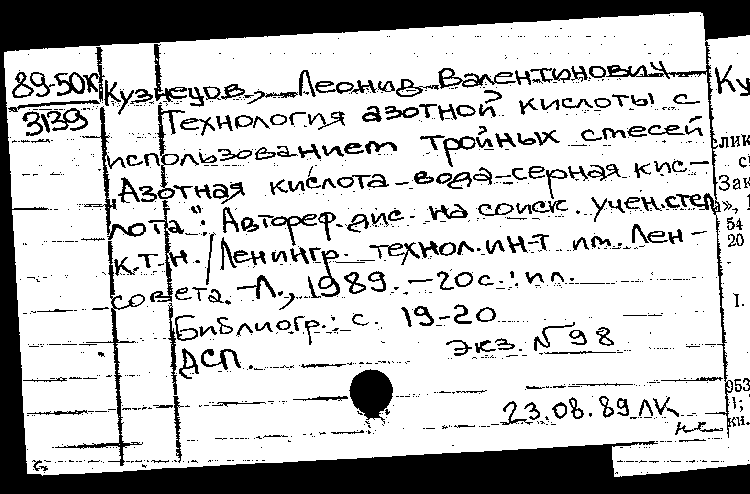 89-50К
3139
Кузнецов, Леонид Валентинович
Технология азотной кислоты с
использованием тройных смесей
"Азотная кислота-вода-серная кис-
лота": Автореф. дис. на соиск. учен. степ.
к.т.н. / Ленингр. технол. ин-т им. Лен-
совета. -Л., 1989. -20с.: ил.
Библиогр.: с. 19-20
ДСП. Экз. №98
23.08.89 ЛК
Ку
слик
с
Зак
54
20
I.
953
кн.